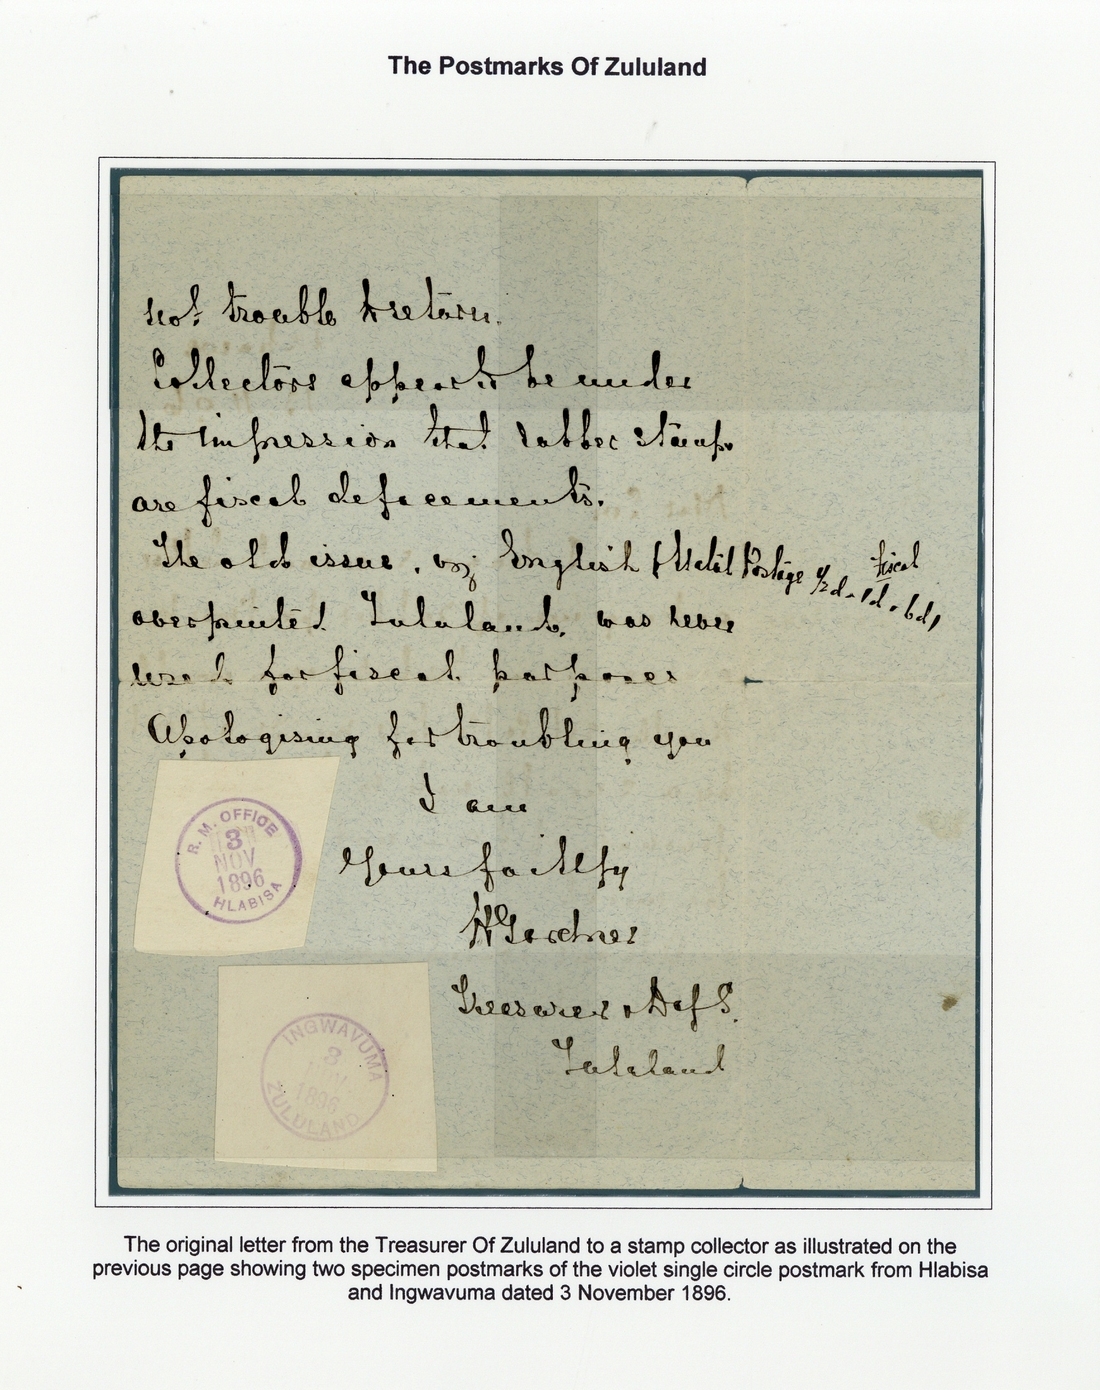 The Postmarks Of Zululand
not trouble to return.
Collectors appear to be under
the impression that rubber stamps
are fiscal defacements.
The old issue, viz English & Natal Postage ½d - 1d - 6d, fiscal
overprinted Zululand, was never
used for fiscal purposes
Apologising for troubling you
I am
Yours faithfy
Gardner
Treasurer
Zululand
R. M. OFFICE
3
NOV
1896
HLABISA
INGWAVUMA
3
1896
ZULULAND
The original letter from the Treasurer Of Zululand to a stamp collector as illustrated on the
previous page showing two specimen postmarks of the violet single circle postmark from Hlabisa
and Ingwavuma dated 3 November 1896.